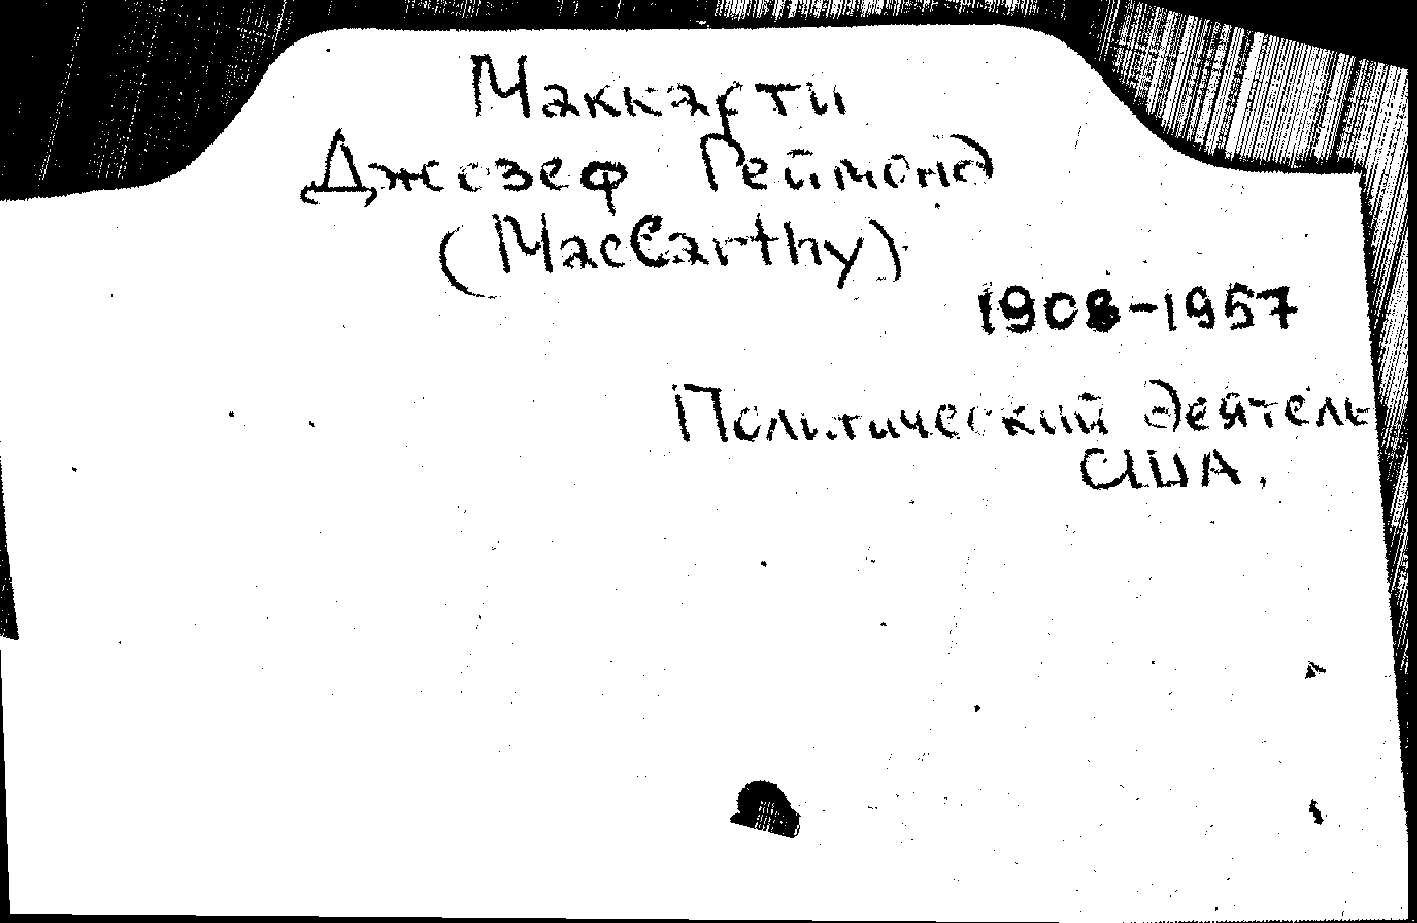 Маккарти
Джозеф Реймонд
(MacCarthy)
1908-1957
Политический деятель
США.